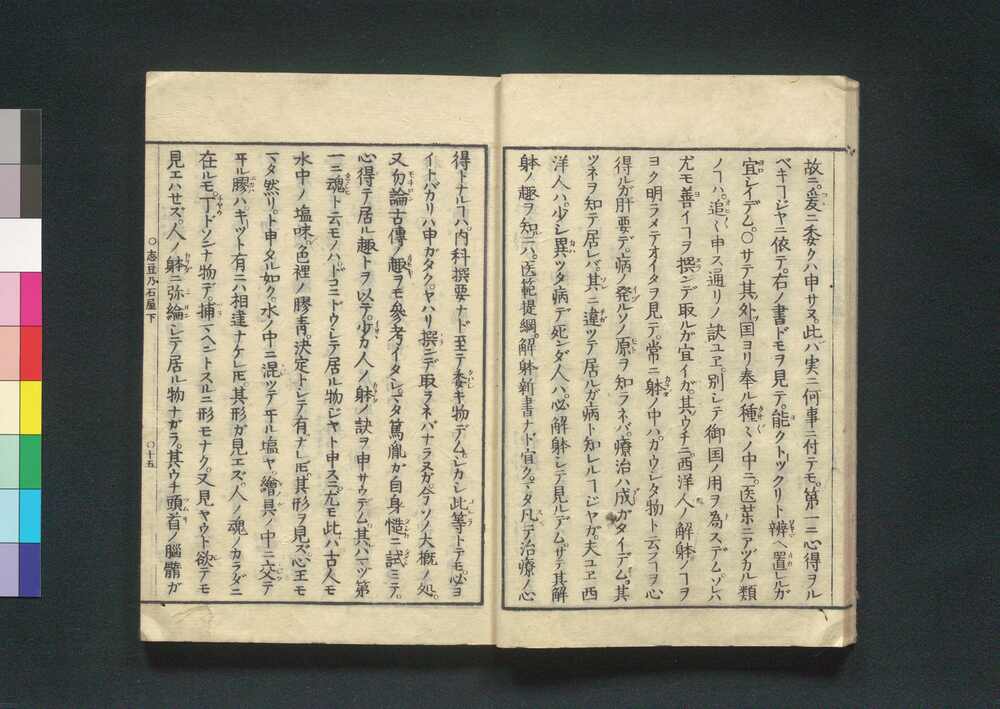 故ニ。爰ニ委クハ申サヌ。此ハ実ニ何事ニ付テモ。第一ニ心得ヲル
ベキヿジヤニ依テ。右ノ書ドモヲ見テ。能クトツクリト辨ヘ置レルガ
宜シイデム。○サテ其外国ヨリ奉ル種々ノ中ニ。医薬ニアヅカル類
ノヿハ。追々申ス通リノ訣ユヱ。別シテ御国ノ用ヲ為スデムゾ。レハ
尤モ善イヿヲ撰ンデ取ルガ宜イガ。其ウチニ西洋人ノ解躰ノヿヲ
ヨク明ラメテオイタヲ見テ。常ニ躰ノ中ハ。カウシタ物ト云フヿヲ心
得ルガ肝要デ。病ノ発ルノ原ヲ知ラネバ療治ハ成ガタイデム。其
ツネヲ知テ居レバ。其ニ違ツテ居ルガ病ト知レルヿジヤガ。夫ユヱ西
洋人ハ。少シ異ツタ病デ死ンダ人ハ。必解躰シテ見ルデム。サテ其解
躰ノ趣ヲ知ニハ。医範提綱。解躰新書ナド宜ク。マタ凡テ治療ノ心
得トナルヿハ。内科撰要ナド至テ委キ物デム。シカシ此等トテモ。必ヨ
イトバカリハ申ガタク。ヤハリ撰ンデ取ラネバナラヌガ。今ソノ大概ノ処。
又勿論古傳ノ趣ヲモ参考イタシ。マタ篤胤ガ自身慥ニ試ミテ。
心得テ居ル趣トヲ以テ。少カ人ノ躰ノ訣ヲ申サウデム。其ハマヅ第
一ニ魂ト云モノハ。ドコニドウシテ居ル物ジヤト申スニ。尤モ此ハ古人モ
水中ノ塩味。色裡ノ膠青。決定トシテ有ナレ𪜈。其形ヲ見ズ。心王モ
マタ然リ。ト申タル如ク。水ノ中ニ混ツテヰル塩ヤ。繪具ノ中ニ交テ
ヰル膠ハ。キツト有ニハ相違ナケレ𪜈。其形ガ見エズ。人ノ魂ノカラダニ
在ルモ。丁ドソンナ物デ。捕マヘントスルニ形モナク。又見ヤウト欲テモ
見エハセズ。人ノ躰ニ弥綸シテ居ル物ナガラ。其ウチ頭首ノ脳髄ガ
○志豆乃石屋下
○十五